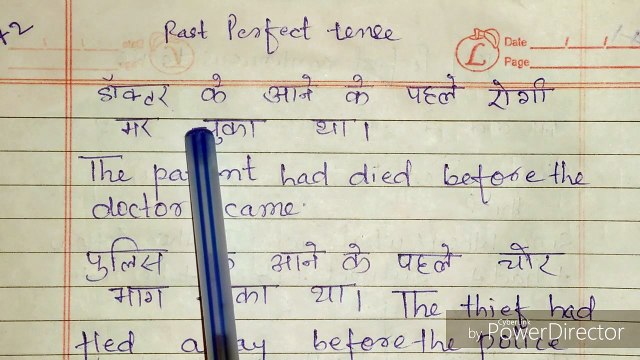 Past Perfect tense
Date
Page
L
डॉक्टर के आने के पहले रोगी
मर चुका था।
The patient had died before the
doctor came.
पुलिस के आने के पहले चोर
भाग चुका था। The thief had
fled away before the police
by CyberLink
PowerDirector